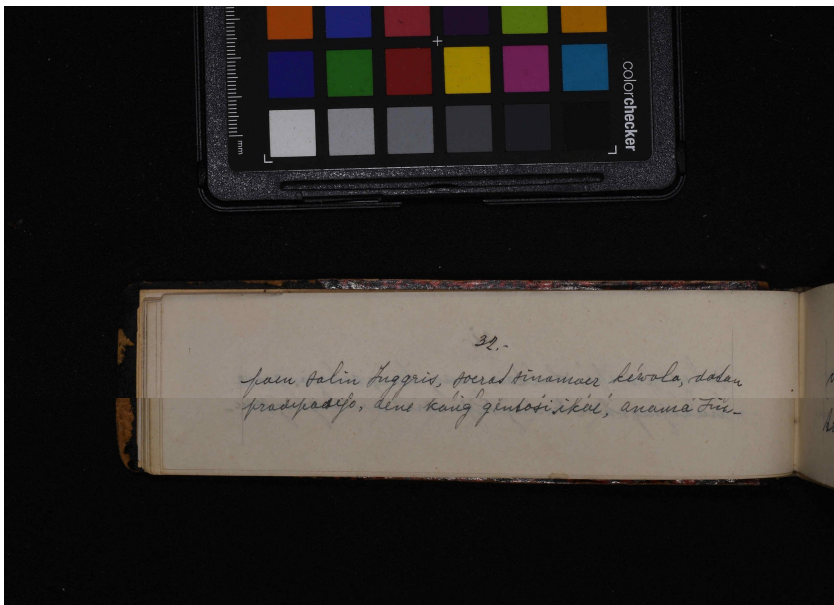 mm
colorchecker
32.-
poen salin Inggris, soerat sinamoer kéwala, dodan
pradipadejo, dene káng gentosi ikoé, anama Jin-